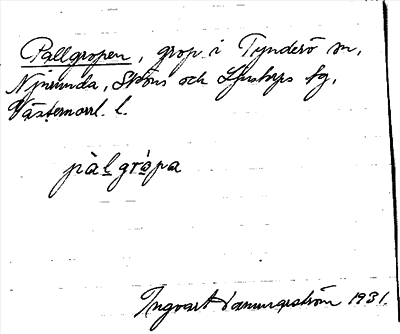 Pallgropen, grop i Tynderö sn,
Njurunda, Sköns och Ljustorps tg,
Västernorrl. l.
pàlgràpa
Ingvart 1931.